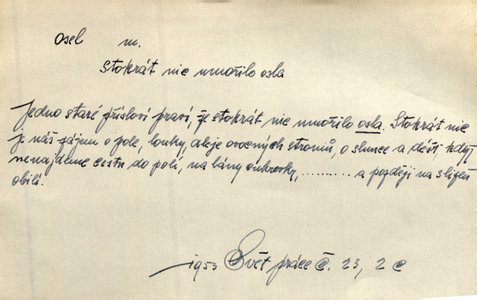 osel m.
Stokrát nic umořilo osla
Jedno staré přísloví praví, že stokrát nic umořilo osla. Stokrát nic
je náš zájem o pole, louky, aleje ovocných stromů, o slunce a déšť, když
nenajdeme cestu do polí, na lány cukrovky, .......... a později na sklizeň
obilí.
1953 Svět práce č. 23, 2